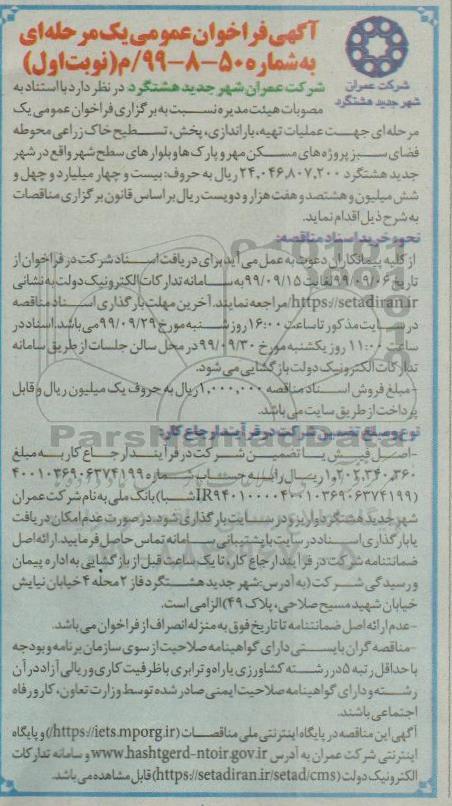 آگهی فراخوان عمومی یک مرحله‌ای
به شماره ۵۰-۸-۹۹/م (نوبت اول)
شرکت عمران
شهر جدید هشتگرد
شرکت عمران شهر جدید هشتگرد در نظر دارد با استناد به
مصوبات هیئت مدیره نسبت به برگزاری فراخوان عمومی یک
مرحله‌ای جهت عملیات تهیه، باراندازی، پخش، تسطیح خاک زراعی محوطه
فضای سبز پروژه‌های مسکن مهر و پارک‌ها و بلوارهای سطح شهر واقع در شهر
جدید هشتگرد ۲۴,۰۴۶,۸۰۷,۲۰۰ ریال به حروف: بیست و چهار میلیارد و چهل و
شش میلیون و هشتصد و هفت هزار و دویست ریال بر اساس قانون برگزاری مناقصات
به شرح ذیل اقدام نماید.
نحوه خرید اسناد مناقصه:
از کلیه پیمانکاران دعوت به عمل می‌آید برای دریافت اسناد شرکت در فراخوان از
تاریخ ۹۹/۰۹/۰۶ لغایت ۹۹/۰۹/۱۵ به سامانه تدارکات الکترونیک دولت به نشانی
https://setadiran.ir/ مراجعه نمایند. آخرین مهلت بارگذاری اسناد مناقصه
در سایت مذکور تا ساعت ۱۶:۰۰ روز شنبه مورخ ۹۹/۰۹/۲۹ می‌باشد. اسناد در
ساعت ۱۱:۰۰ روز یکشنبه مورخ ۹۹/۰۹/۳۰ در محل سالن جلسات از طریق سامانه
تدارکات الکترونیک دولت بازگشایی می‌شود.
-مبلغ فروش اسناد مناقصه ۱,۰۰۰,۰۰۰ ریال به حروف یک میلیون ریال و قابل
پرداخت از طریق سایت می‌باشد.
نوع و مبلغ تضمین شرکت در فرآیند ارجاع کار:
-اصل فیش یا تضمین شرکت در فرآیند ارجاع کار به مبلغ
ریال را به حساب شماره ۴۰۰۱۰۳۶۹۰۶۳۷۴۱۹۹
(شبا) بانک ملی به نام شرکت عمران
شهر جدید هشتگرد واریز و در سایت بارگذاری شود. در صورت عدم امکان دریافت
یا بارگذاری اسناد در سایت با پشتیبانی سامانه تماس حاصل فرمایید. ارائه اصل
ضمانتنامه شرکت در فرآیند ارجاع کار، تا یک ساعت قبل از بازگشایی به اداره پیمان
و رسیدگی شرکت (به آدرس: شهر جدید هشتگرد فاز ۲ محله ۴ خیابان نیایش
خیابان شهید مسیح صلاحی، پلاک ۴۹) الزامی است.
-عدم ارائه اصل ضمانتنامه تا تاریخ فوق به منزله انصراف از فراخوان می‌باشد.
-مناقصه گران بایستی دارای گواهینامه صلاحیت از سوی سازمان برنامه و بودجه
با حداقل رتبه ۵ در رشته کشاورزی یا راه و ترابری با ظرفیت کاری و ریالی آزاد در آن
رشته و دارای گواهینامه صلاحیت ایمنی صادر شده توسط وزارت تعاون، کار و رفاه
اجتماعی باشند.
آگهی این مناقصه در پایگاه اینترنتی ملی مناقصات (https://iets.mporg.ir/) و پایگاه
اینترنتی شرکت عمران به آدرس www.hashtgerd-ntoir.gov.ir و سامانه تدارکات
الکترونیک دولت (https://setadiran.ir/setad/cms) قابل مشاهده می‌باشد.
ParsNamadData